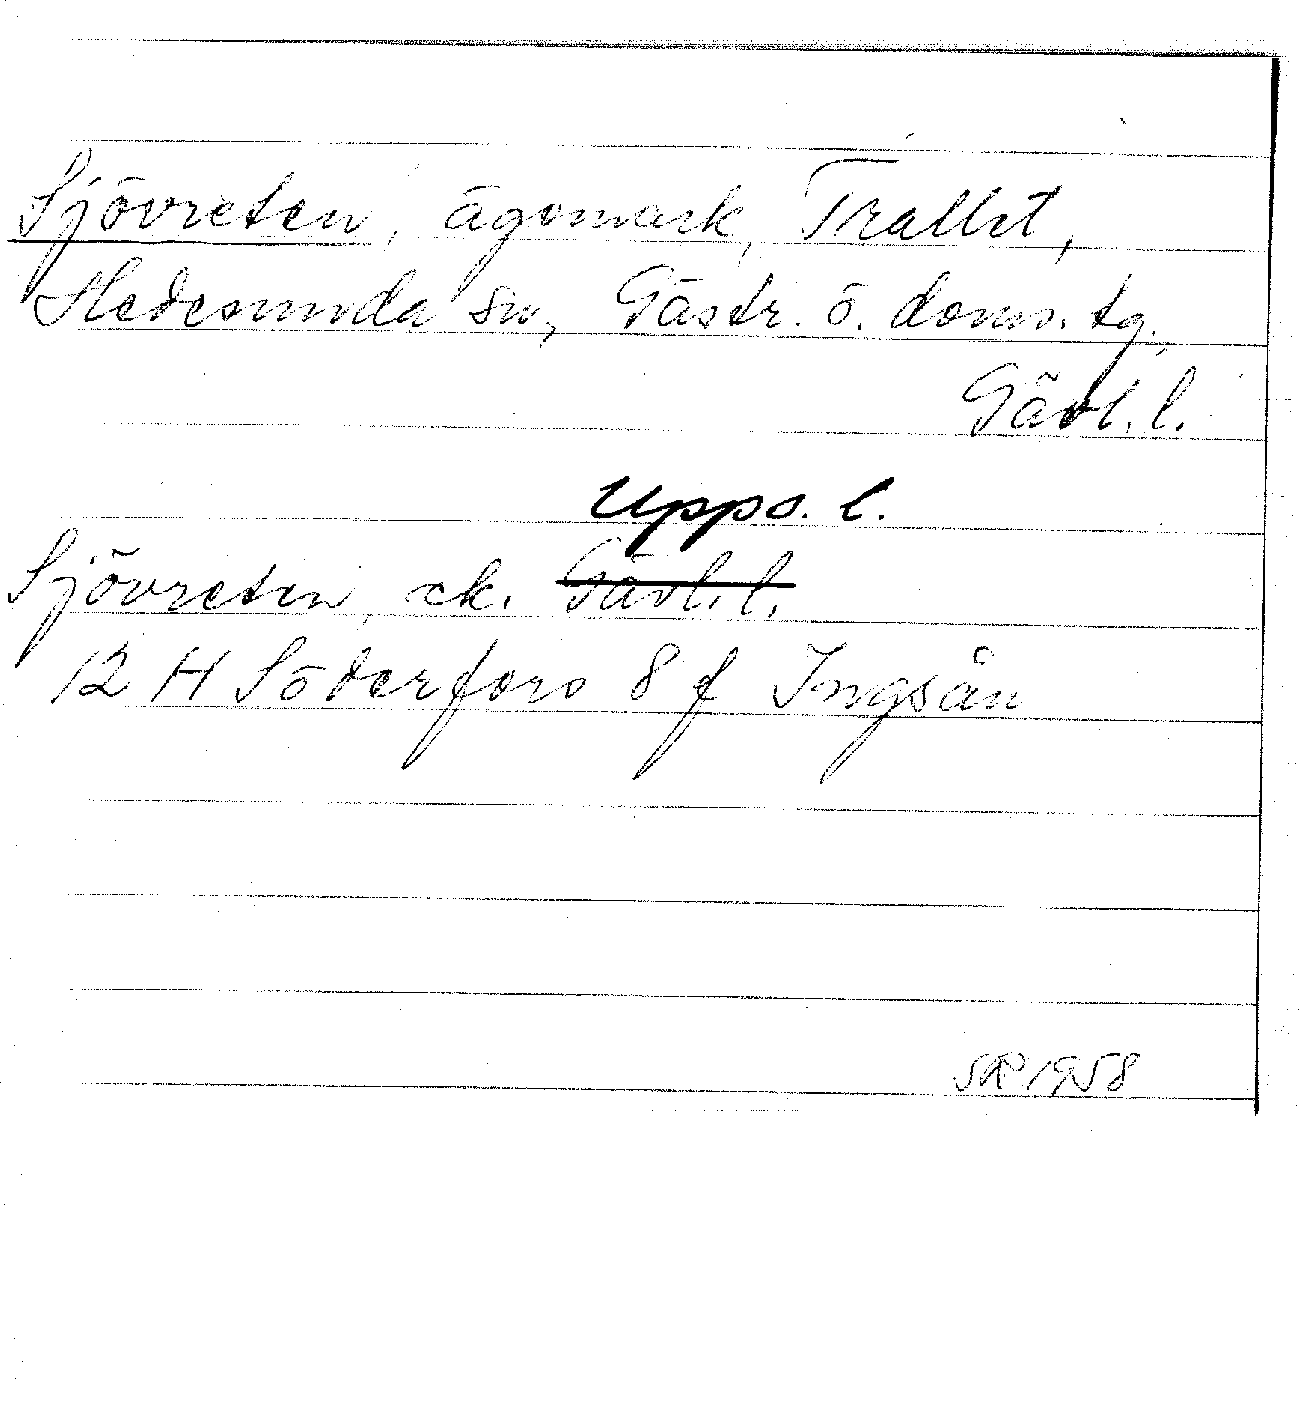 Sjövreten, ägomark, Trallit,
Hedesunda sn, Gästr. ö. doms. tg.
Gävl. l.
Upps. l.
Sjövreten, ek. Gävl. l.
12 H Söderfors 8 f Ingsån
1958